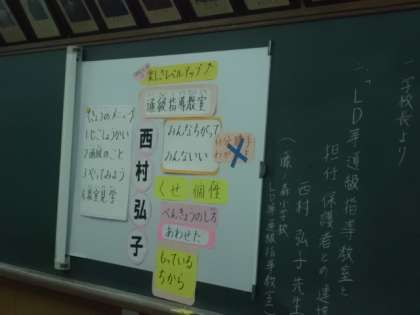 楽しさレベルアップ↑
通級指導教室
きょうのメニュー
1じこしょうかい
2通級のこと
3やってみよう
4教室見学
西村弘子
みんなちがって
みんないい
くせ 個性
べんきょうのしかた
あわせた
もっている
ちから
一、学校長より
一、「LD等通級指導教室と
担任・保護者との連携
西村 弘子先生
LD等通級指導教室